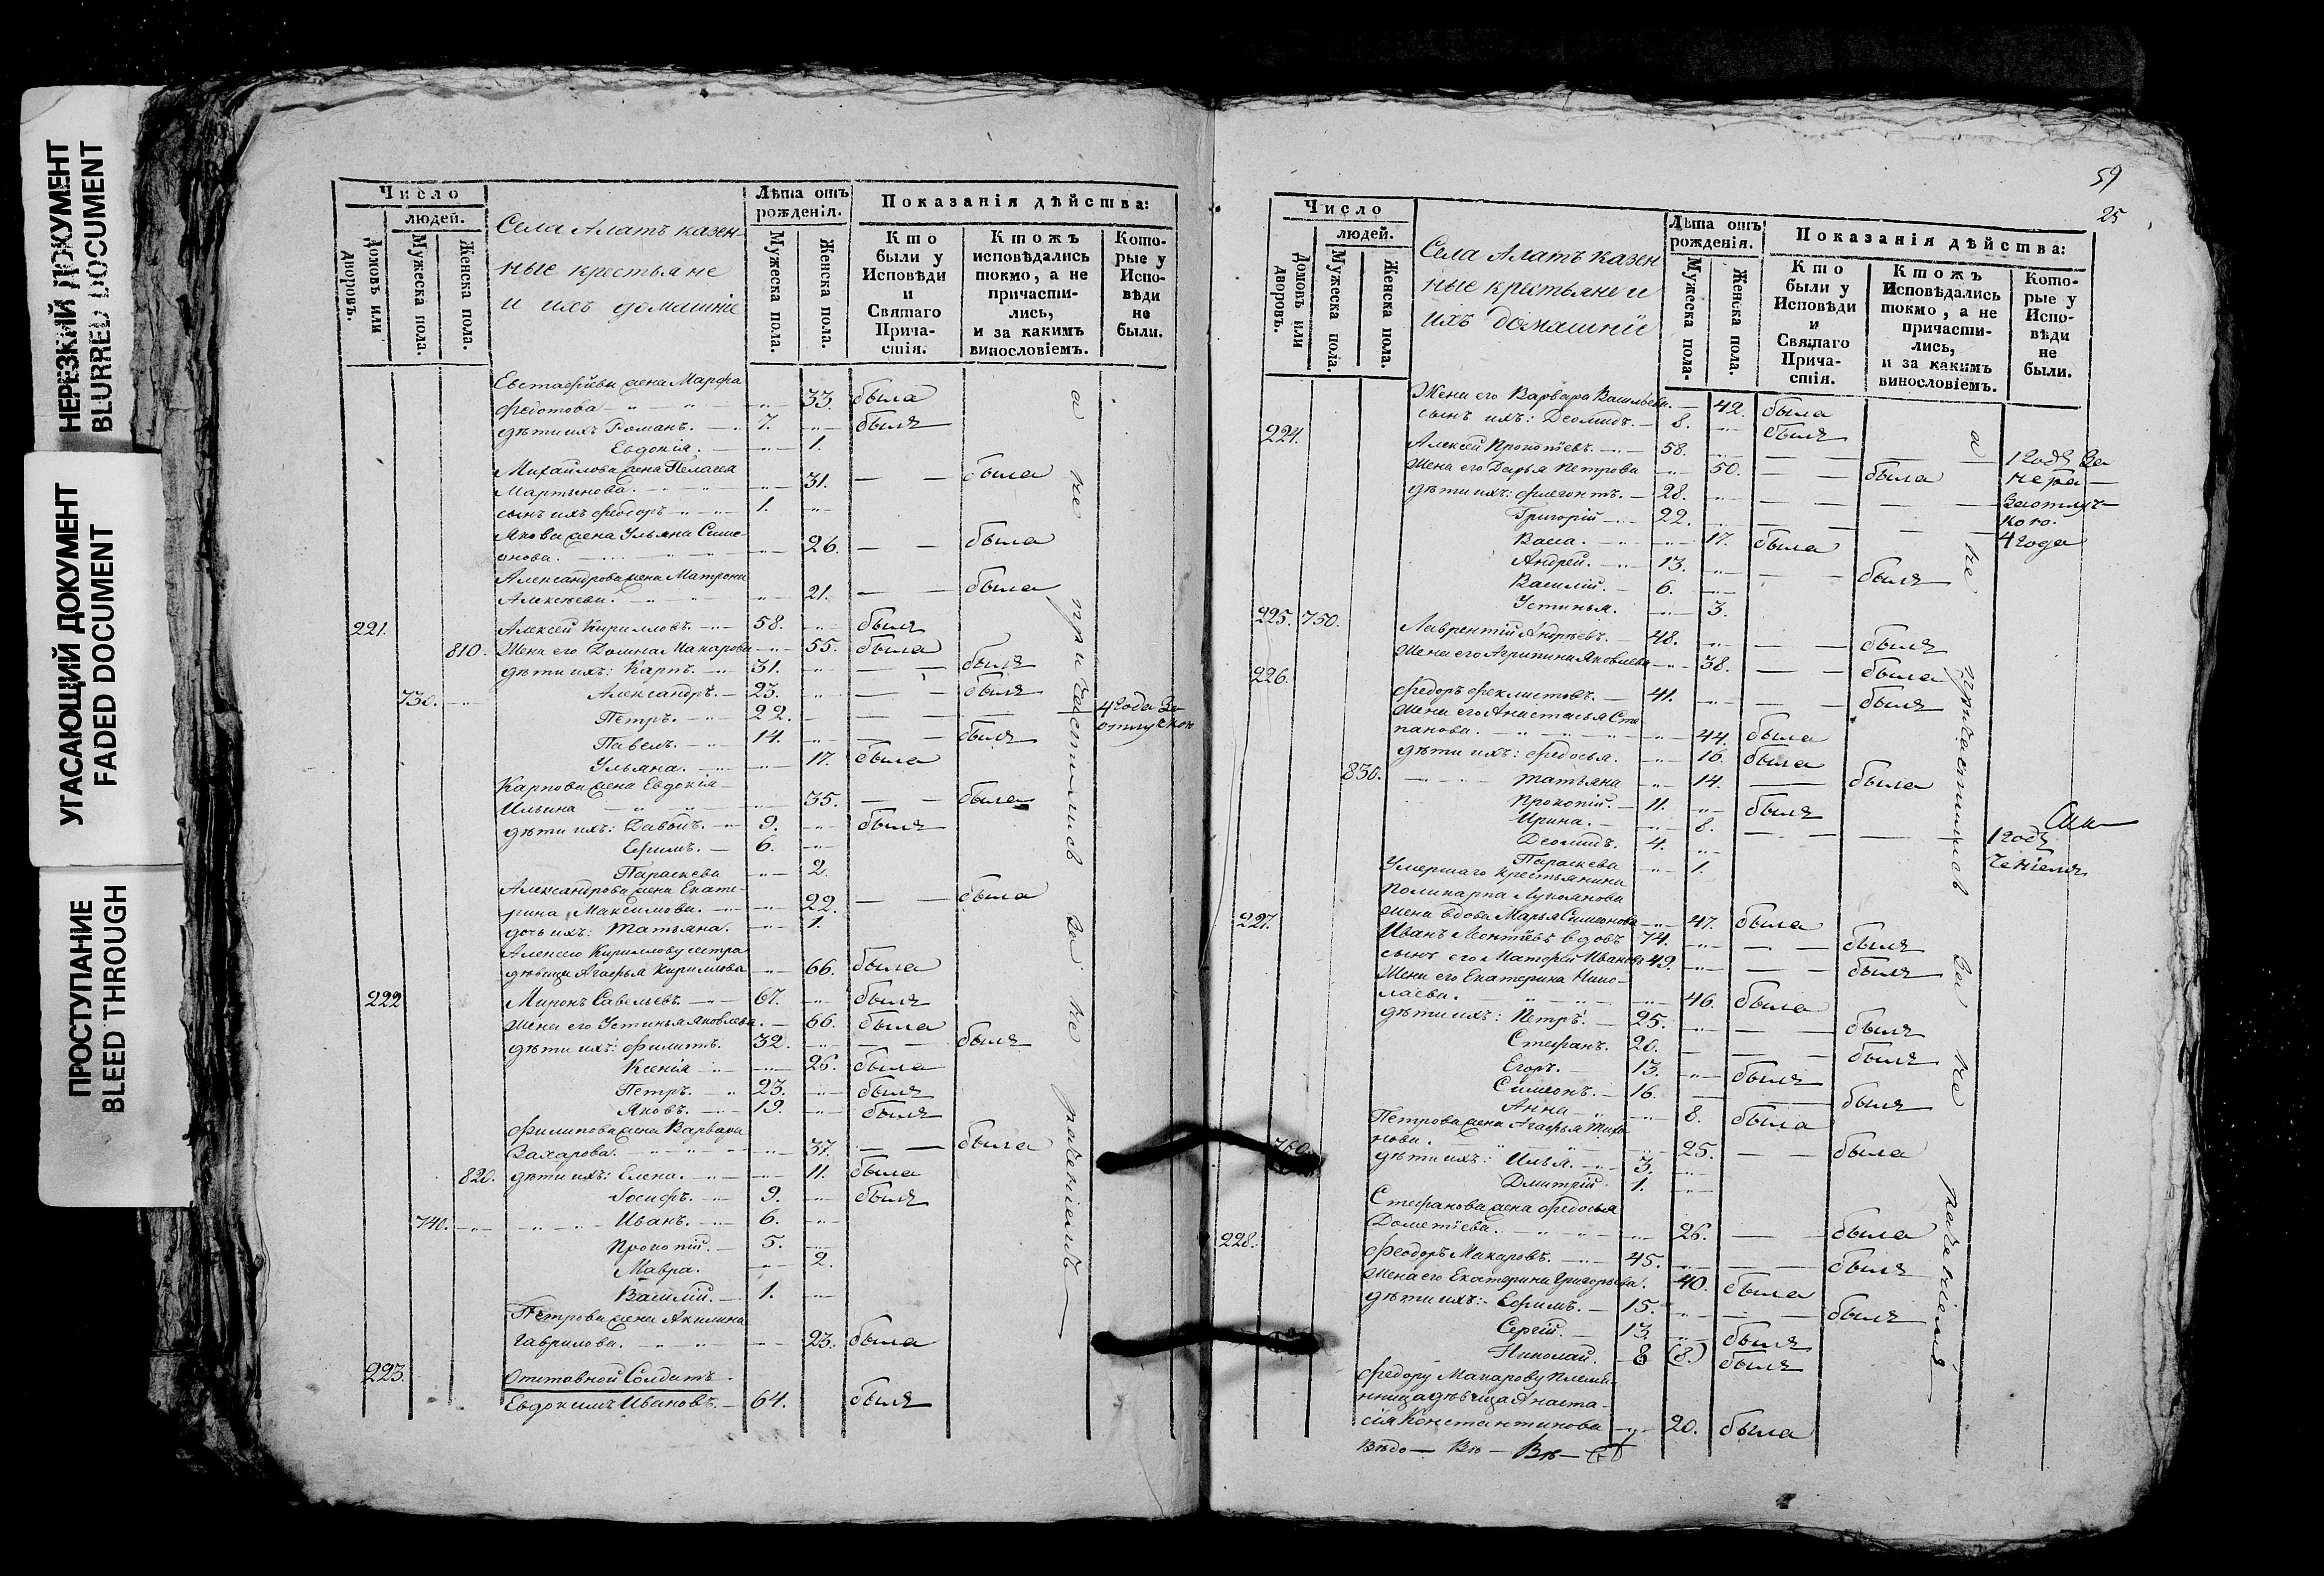 НЕРЕЗКИЙ ДОКУМЕНТ
BLURRED DOCUMENT
УГАСАЮЩИЙ ДОКУМЕНТ
FADED DOCUMENT
ПРОСТУПАНИЕ
BLEED THROUGH
Число
людей.
Домовъ или дворовъ.
Мужеска пола.
Женска пола.
Села Алатъ казен-
ные крестьяне
и ихъ домашніе
Лѣта отъ рожденія.
Мужеска пола.
Женска пола.
Показанія дѣйства:
Кто были у Исповѣди и Святаго Прича-стія.
Ктожъ исповѣдались токмо, а не причасти-лись, и за какимъ винословіемъ.
Кото-рые у Испо-вѣди не были.
Евстафіева жена Марфа
Федотова 33. была
дѣти ихъ Романъ. 7. былъ
Евдокія. 1.
Михайлова жена Пелагея
Мартынова. 31. была
сынъ ихъ Феодоръ 1.
Якова жена Ульяна Симе-
онова. 26. была
Александрова жена Матрона
Алексѣева. 21. была
221. Алексей Кирилловъ. 58. былъ
810. Жена его Домна Макарова 55. была
дѣти ихъ: Карпъ. 31. былъ
730. Александръ. 23. былъ
Петръ. 22. 4 года за отлучкою
Павелъ. 14. былъ
Ульяна. 17. была
Карпова жена Евдокія
Ильина 35. была
дѣти ихъ: Давыдъ. 9. былъ
Ефимъ. 6.
Параскева 2.
Александрова жена Екате-
рина Максимова. 22. была
дочь ихъ: Татьяна. 1.
Алексею Кириллову сестра
дѣвица Агафья Кириллова 66. была
222 Миронъ Савельевъ. 67. былъ
Жена его Устинья Яковлева. 66. была
дѣти ихъ: Филиппъ. 32. былъ
Ксенія 26. была
Петръ. 23. былъ
Яковъ. 19. былъ
Филипова жена Варвара
Захарова. 37. была
820. дѣти ихъ: Елена. 11. была
Іосифъ. 9. былъ
740. Иванъ. 6.
Прокопій. 5.
Мавра. 2.
Василій. 1.
Петрова жена Акилина
Гаврилова. 23. была
223. Отставной Солдатъ
Евдокимъ Ивановъ. 64. былъ
а не причастились за не раченіемъ
59
25
Число
людей.
Домовъ или дворовъ.
Мужеска пола.
Женска пола.
Села Алатъ казен
ные крестьяне и
ихъ домашніе
Лѣта отъ рожденія.
Мужеска пола.
Женска пола.
Показанія дѣйства:
Кто были у Исповѣди и Святаго Прича-стія.
Ктожъ Исповѣдались токмо, а не причасти-лись, и за какимъ винословіемъ.
Кото-рые у Испо-вѣди не были.
Жена его Варвара Васильева. 42. была
сынъ ихъ: Деомидъ. 8. былъ
224. Алексѣй Прокопіевъ. 58. 1 годъ за нера
Жена его Дарья Петрова 50. была
дѣти ихъ: Флегонтъ. 28. за отлуч-
Григорій 22. кою. 4 года
Васса. 17. была
Андрей. 13. былъ
Василій. 6.
Устинья. 3.
225. 750. Лаврентій Андреевъ. 48. былъ
Жена его Агрипина Яковлева 38. была
226. Федоръ Феклистовъ. 41. былъ
Жена его Анастасья Сте
панова. 44. была
дѣти ихъ: Федосья. 16. была
830. Татьяна 14. была
Прокопій. 11. былъ
Ирина. 8. 1 годъ
Деомидъ. 4.
Параскева 1.
Умершаго крестьянина
Поликарпа Лукоянова
жена вдова Марья Симеонова 47. была
227. Иванъ Леонтіевъ вдовъ 74. былъ
сынъ его Матфей Ивановъ 49. былъ
Жена его Екатерина Нико-
лаева. 46. была
дѣти ихъ: Петръ. 25. былъ
Стефанъ. 20. былъ
Егоръ. 13. былъ
Симеонъ. 16. былъ
Анна 8. была
Петрова жена Агафья Тихо
нова. 25. была
760. дѣти ихъ: Илья. 3.
Дмитрій 1.
Стефанова жена Федосья
Дометіева. 26. была
228. Феодоръ Макаровъ. 45. былъ
Жена его Екатерина Григорьева. 40. была
дѣти ихъ: Ефимъ. 15. былъ
Сергій. 13. былъ
Николай. 8 (8.) былъ
Федору Макарову племя-
нница дѣвица Анаста-
сія Константинова 20. была
а не причастились за не раченіемъ